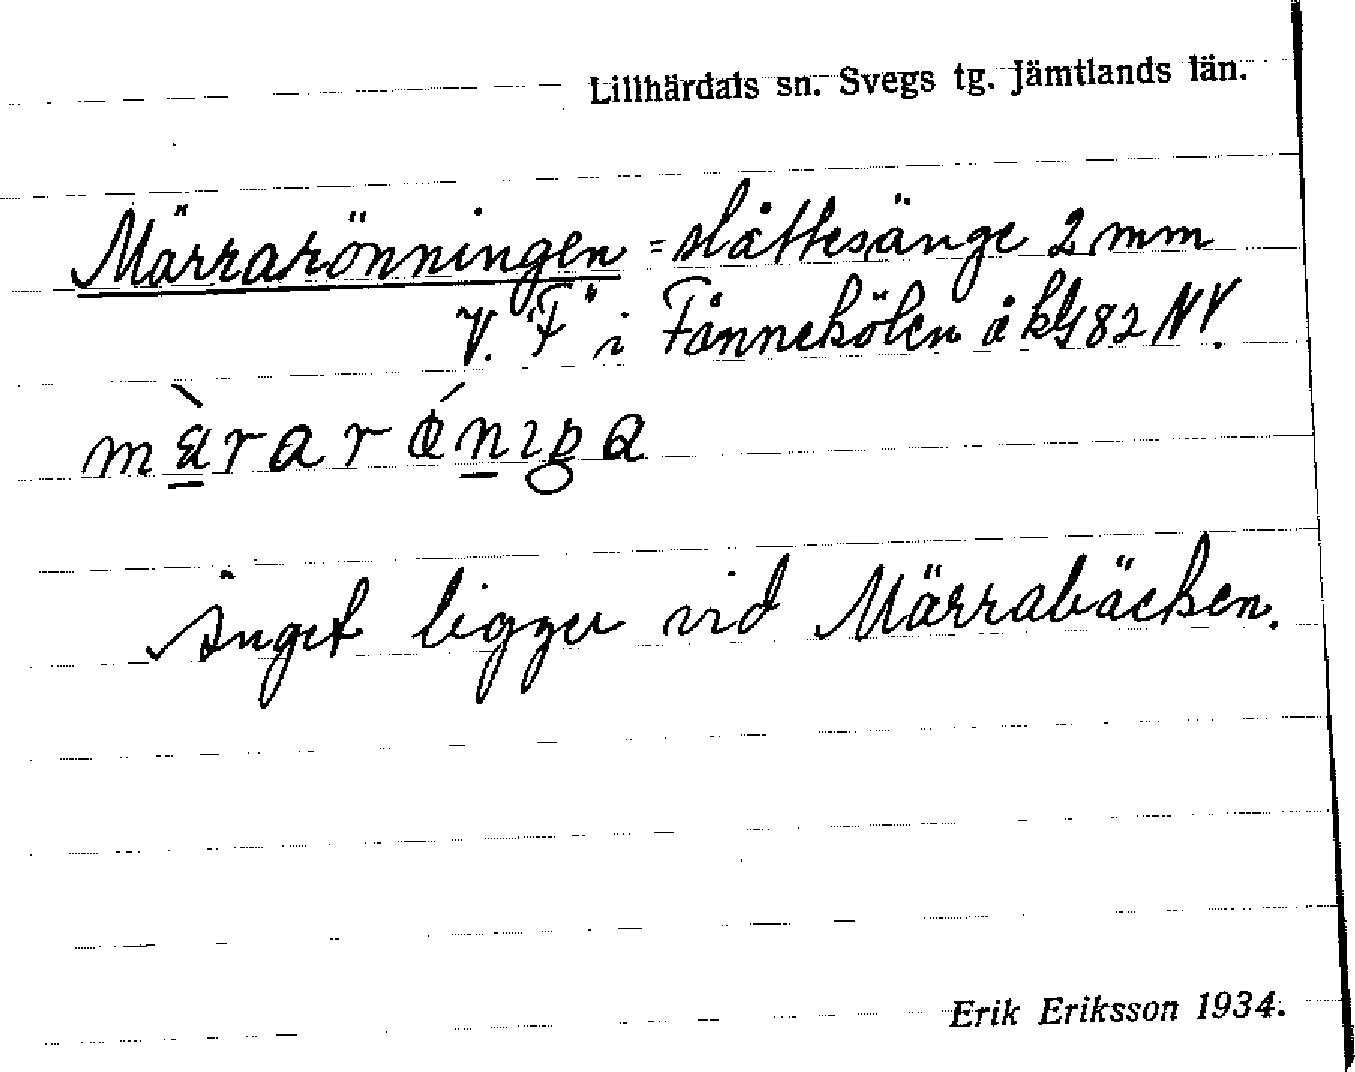 Lillhärdals sn. Svegs tg. Jämtlands län.
Märrarönningen = slåttesänge 2 mm
V. "F" i Fånnekölen å kbl 82 NV.
mæ̀rarǿnıŋa
Änget ligger vid Märrabäcken.
Erik Eriksson 1934.